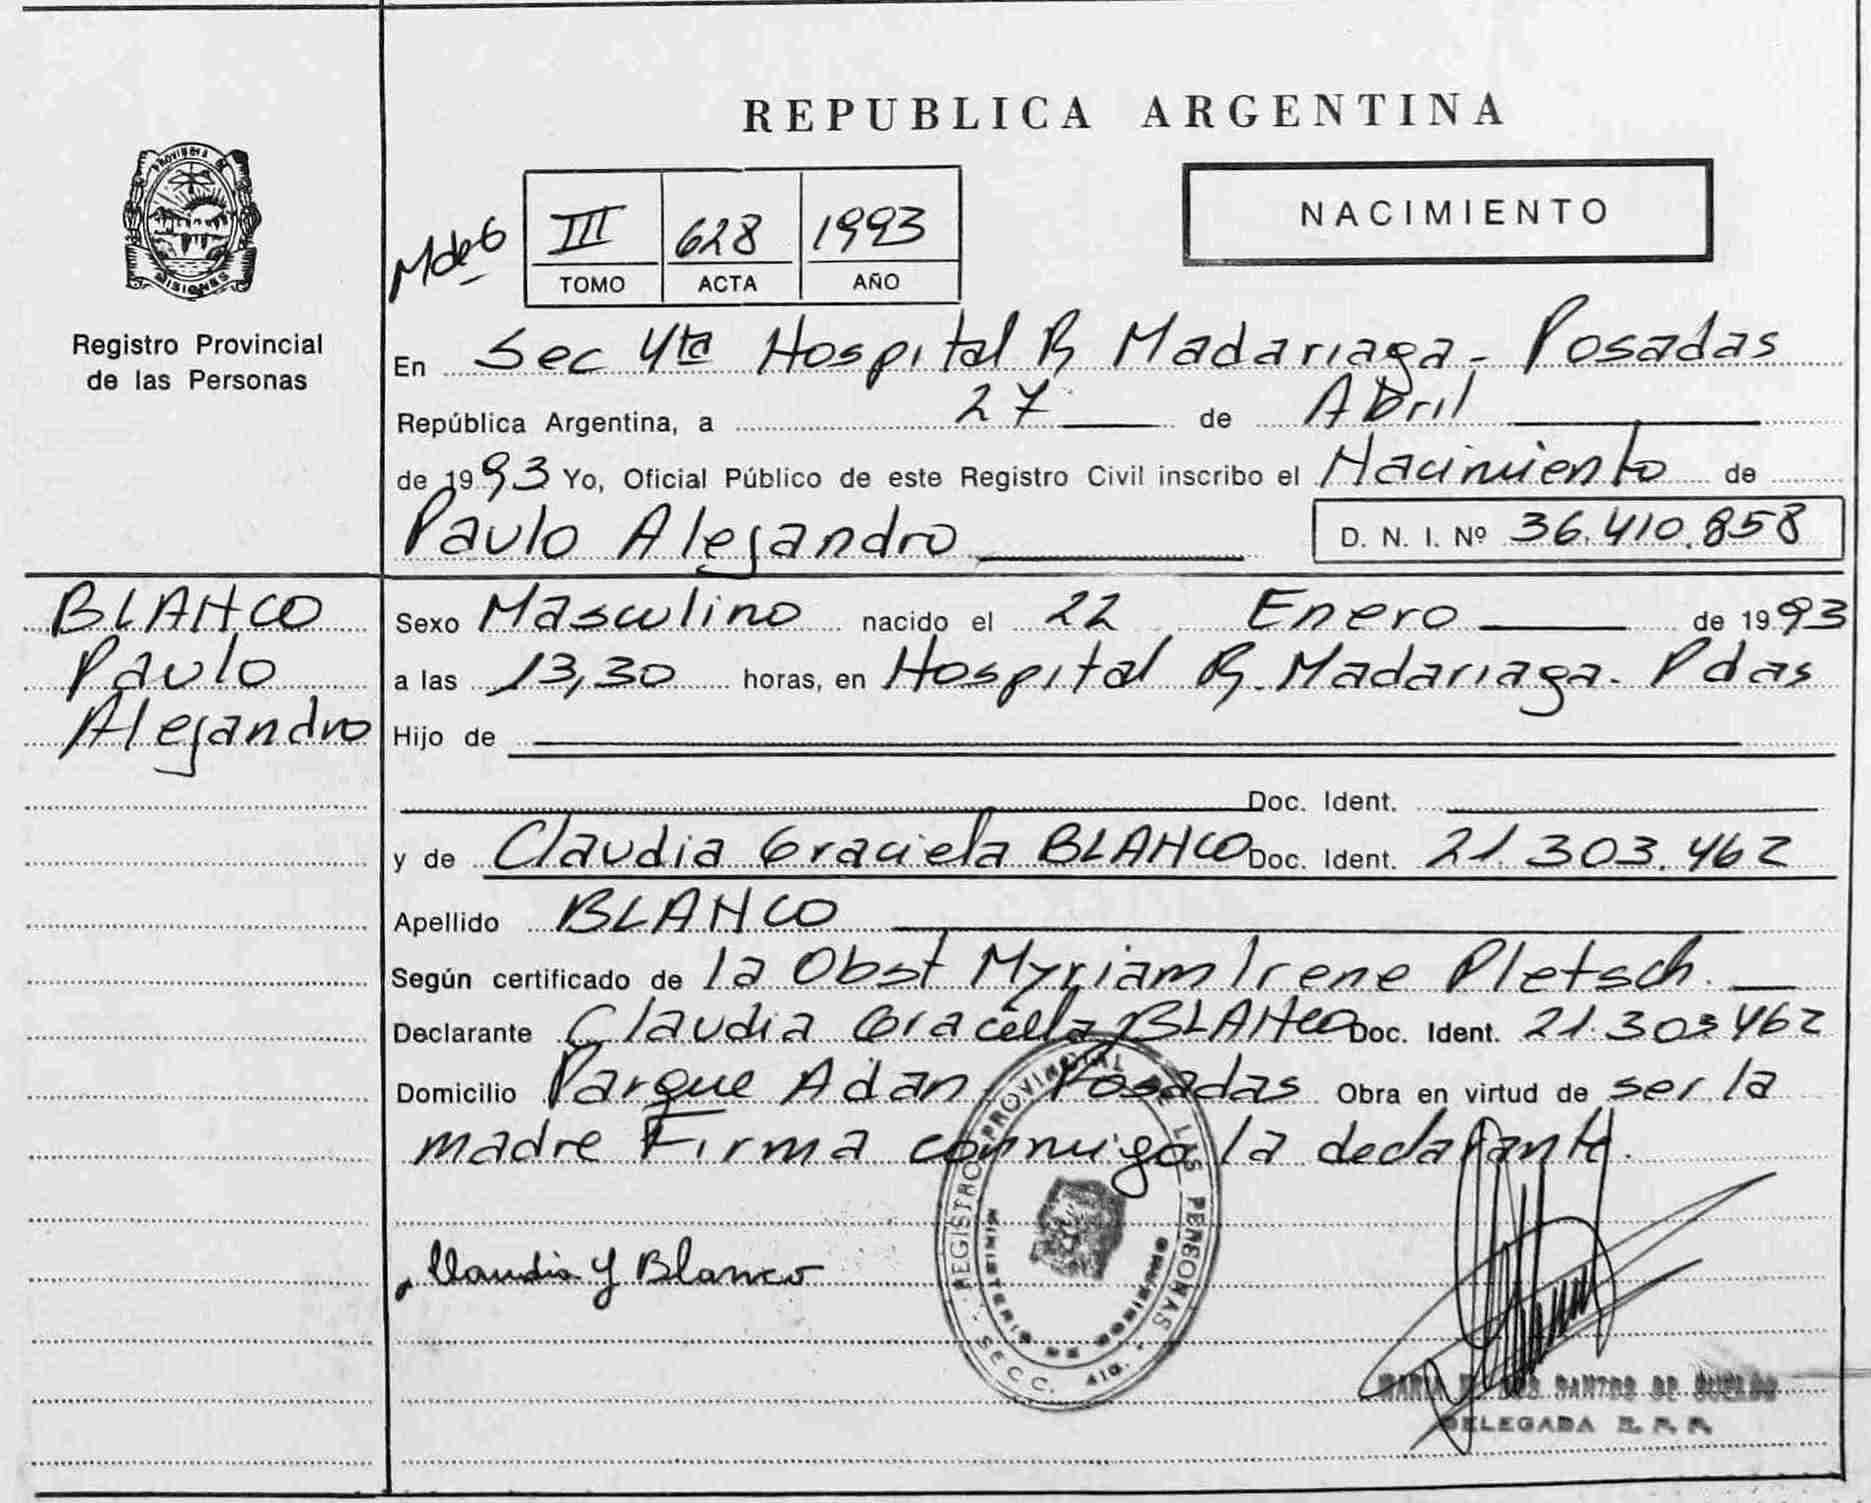 REPUBLICA ARGENTINA
PROVINCIA DE
MISIONES
Registro Provincial
de las Personas
NACIMIENTO
M de G
III 628 1993
TOMO ACTA AÑO
En Sec 4ta Hospital R Madariaga - Posadas
República Argentina, a 27 de Abril
de 1993 Yo, Oficial Público de este Registro Civil inscribo el Nacimiento de
Paulo Alejandro D. N. I. Nº 36.410.858
BLANCO
Paulo
Alejandro
Sexo Masculino nacido el 22 Enero de 1993
a las 13,30 horas, en Hospital R. Madariaga. Pdas
Hijo de
Doc. Ident.
y de Claudia Graciela BLANCO Doc. Ident. 21.303.462
Apellido BLANCO
Según certificado de la Obst Myriam Irene Pletsch.
Declarante Claudia Graciela BLANCO Doc. Ident. 21.303.462
Domicilio Parque Adan, Posadas Obra en virtud de ser la
madre Firma conmigo la declarante.
Claudia G Blanco
REGISTRO PROVINCIAL DE LAS PERSONAS
MINISTERIO DE GOBIERNO
SECC. 4ta.
SANTOS DE
DELEGADA R. P. P.